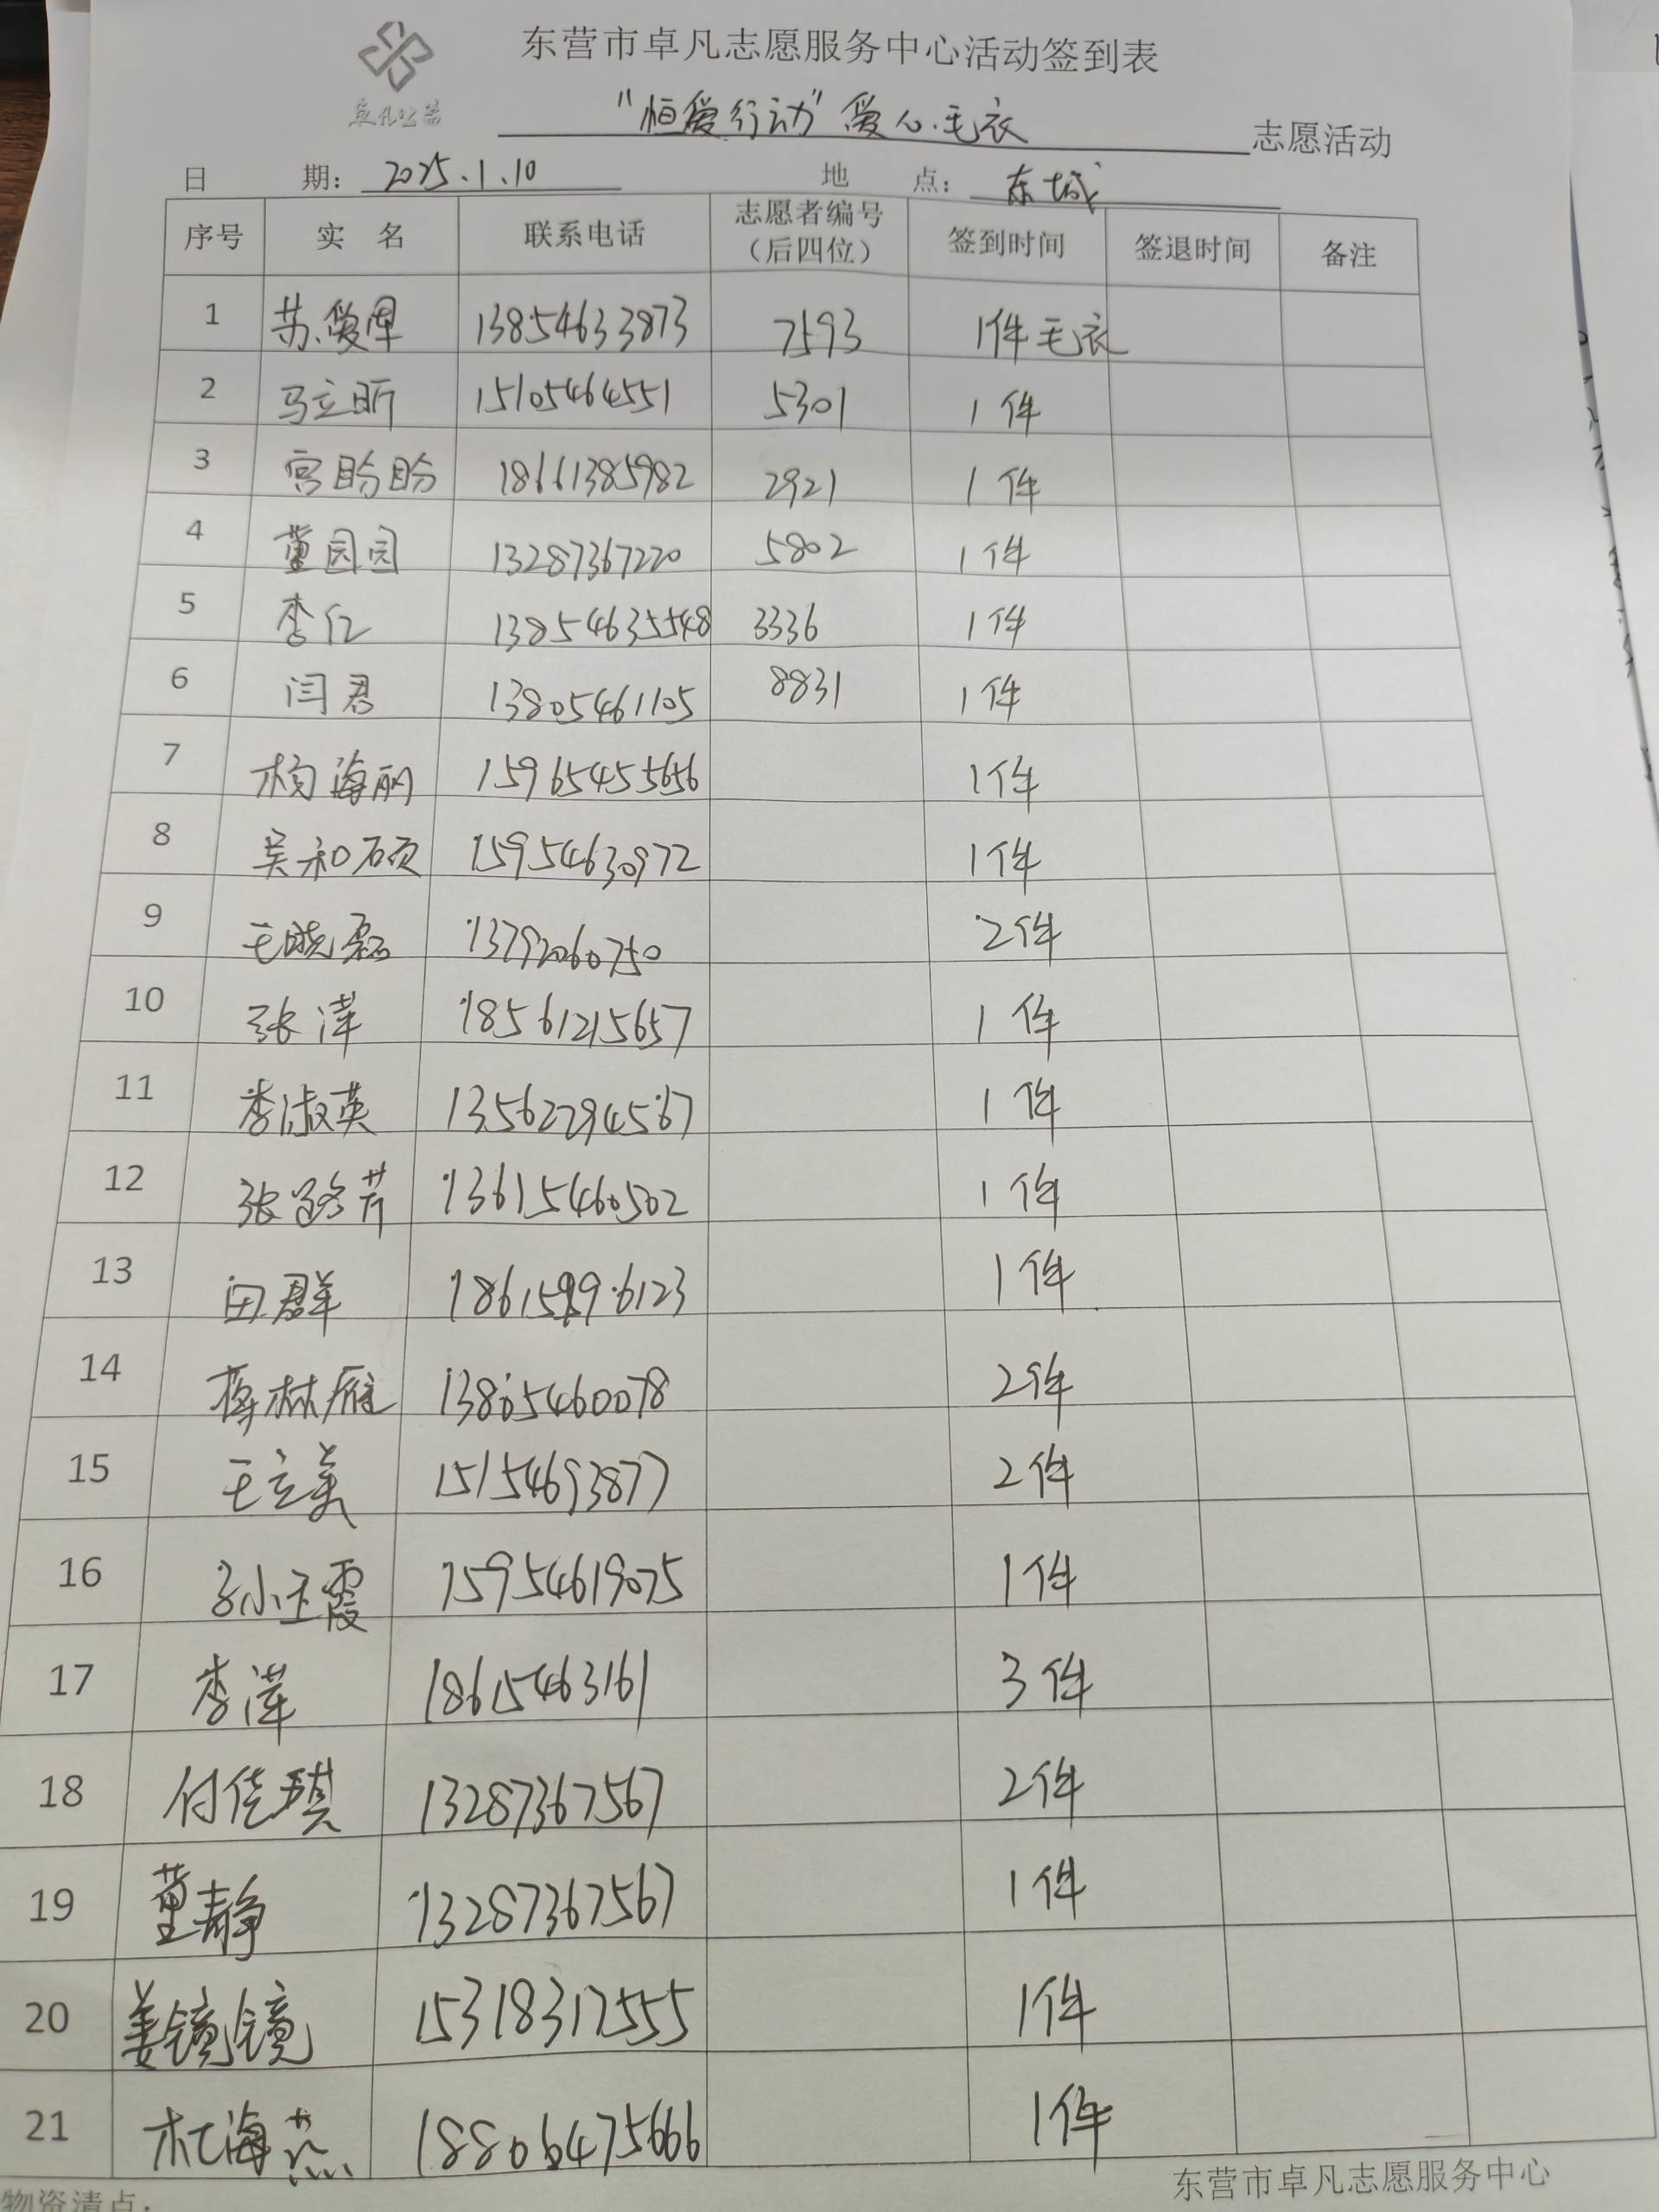 卓凡公益
东营市卓凡志愿服务中心活动签到表
"恒爱行动"爱心毛衣 志愿活动
日 期: 2025.1.10 地 点: 东城
序号 实 名 联系电话 志愿者编号(后四位) 签到时间 签退时间 备注
1 苏爱军 13854633873 7593 1件毛衣
2 马立昕 15105464551 5301 1件
3 宫盼盼 18661385982 2921 1件
4 董园园 13287367220 5802 1件
5 李仁 13854635548 3336 1件
6 闫君 13805461105 8831 1件
7 杨海丽 15965455656 1件
8 吴和硕 15954630972 1件
9 王晓磊 13792060750 2件
10 张萍 18561215657 1件
11 李淑英 13562294567 1件
12 张路芹 13615460502 1件
13 田群 1件
14 林雁 13805460078 2件
15 王立美 15154693877 2件
16 孙玉霞 15954619075 1件
17 李萍 18615463161 3件
18 付佳琪 13287367567 2件
19 董静 13287367567 1件
20 姜镜镜 15318317555 1件
21 杜海燕 18806475666 1件
东营市卓凡志愿服务中心
物资清点: